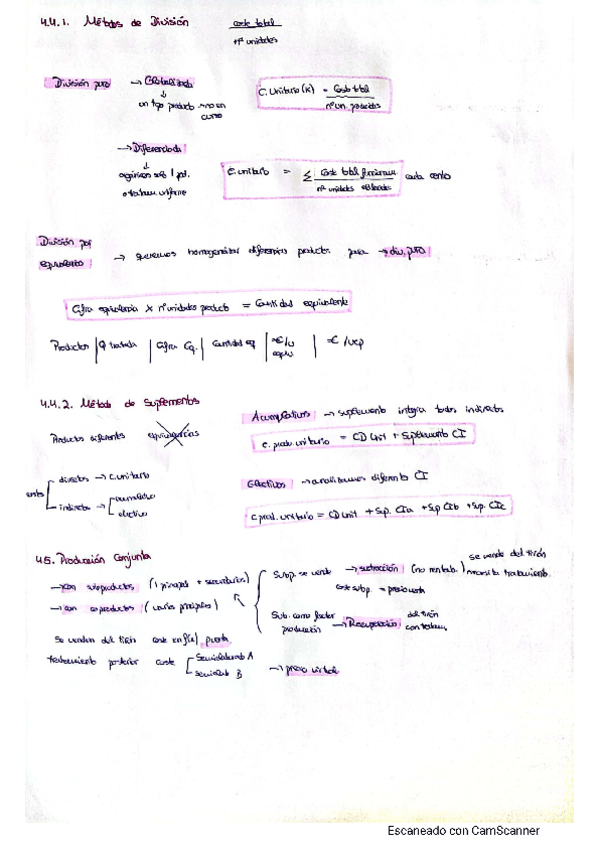 4.4.1. Métodos de División
coste total
nº unidades
División pura → Globalizada
↓
un tipo producto → no en
curso
C. Unitario (K) = Coste total
nº un. producidas
→ Diferenciada
↓
C. unitario = Σ Coste total funcionamiento cada centro
nº unidades elaboradas
División por
equivalencia → queremos homogeneizar diferentes productos para → div. pura
Cifra equivalencia x nº unidades producto = Cantidad equivalente
Productos | Q tratada | Cifra Eq. | Cantidad eq | €/u | €/u
equiv
4.4.2. Método de Suplementos
Productos diferentes equivalencias
Acumulativos → suplemento integra todos indirectos
C. prod. unitario = CD Unit + Suplemento CI
directos → C. unitario
indirectos → acumulativo
electivo
Electivos → analizamos diferentes CI
C prod. unitario = CD Unit + Sup. CIa + Sup CIb + Sup. CIc
4.5. Producción Conjunta
→ con subproductos (1 principal + secundarios)
→ con coproductos (varios principales)
Subp. se vende → sustracción (no rentab.)
se vende del tirón
necesita tratamiento.
coste subp. = precio venta
Sub. como factor
producción → Recuperación
del tirón
con tratam.
Se venden del tirón coste en f(x) pventa
tratamiento posterior coste Semielaborado A
semielab B → precio virtual
Escaneado con CamScanner